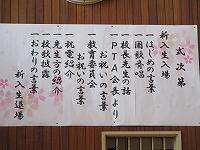 式次第
新入生入場
一はじめの言葉
一国歌斉唱
一校長先生の話
一PTA会長より
お祝いの言葉
一教育委員会
お祝いの言葉
一祝電紹介
一先生方の紹介
一校歌披露
一おわりの言葉
新入生退場